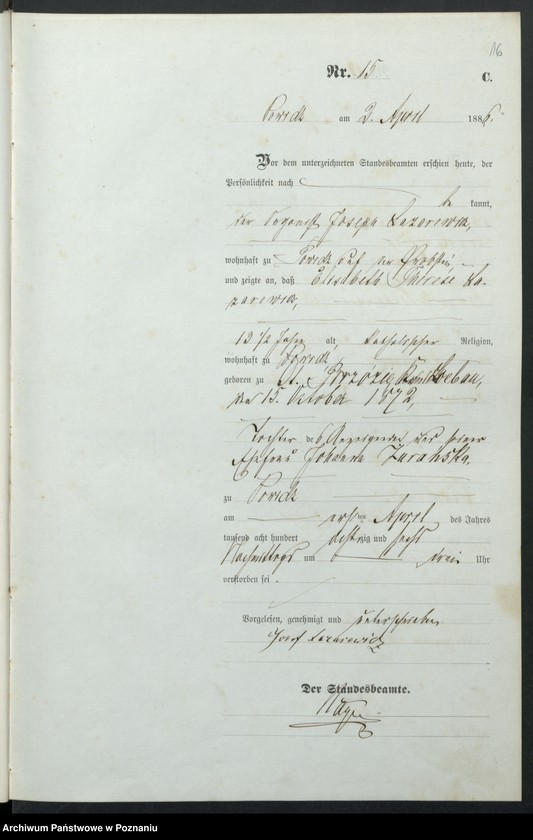 116
Nr. 15
C.
Powidz am 2. April 1886.
Vor dem unterzeichneten Standesbeamten erschien heute, der
Persönlichkeit nach
be kannt,
der Organist Joseph Lazarewicz,
wohnhaft zu Powidz auf der Probstei
und zeigte an, daß Elisabeth Therese La-
zarewicz,
13 1/2 Jahre alt, katholischer Religion,
wohnhaft zu Powidz,
geboren zu Kreis Loebau,
den 15. October 1872,
Tochter des Anzeigenden und seiner
Ehefrau Johanna Zuranska,
zu Powidz
am ersten April des Jahres
tausend acht hundert achtzig und sechs
Nachmittags um drei Uhr
verstorben sei.
Vorgelesen, genehmigt und unterschrieben
Josef Lazarewicz
Der Standesbeamte.
Archiwum Państwowe w Poznaniu